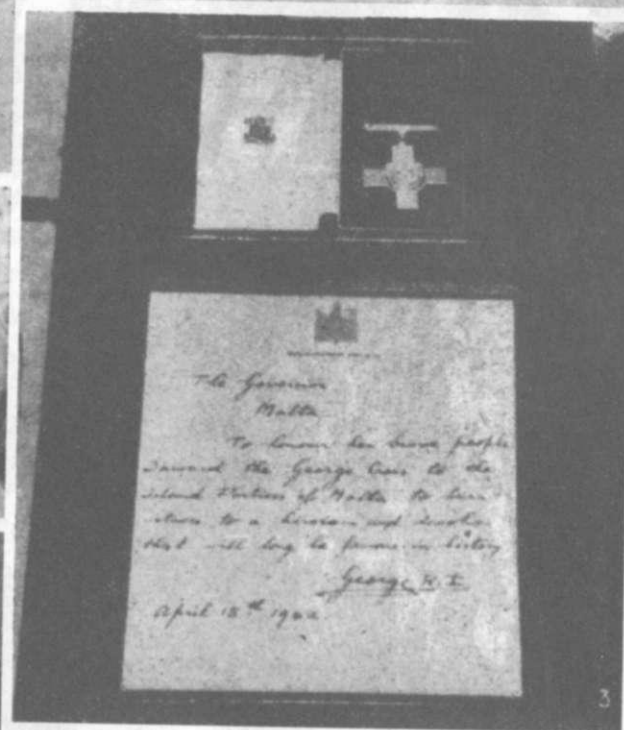 The Governor
Malta
To honour her brave people
I award the George Cross to the
Island Fortress of Malta to bear
witness to a heroism and devotion
that will long be famous in history
George R.I.
April 15th 1942
3